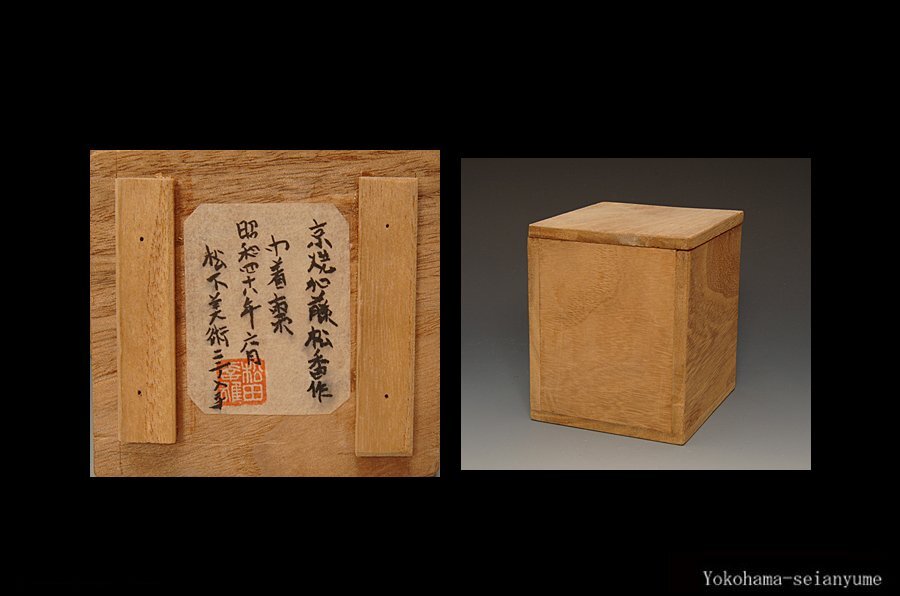 京焼加藤松香作
巾着棗
昭和四十八年六月
松下美術
松田
Yokohama-seianyume